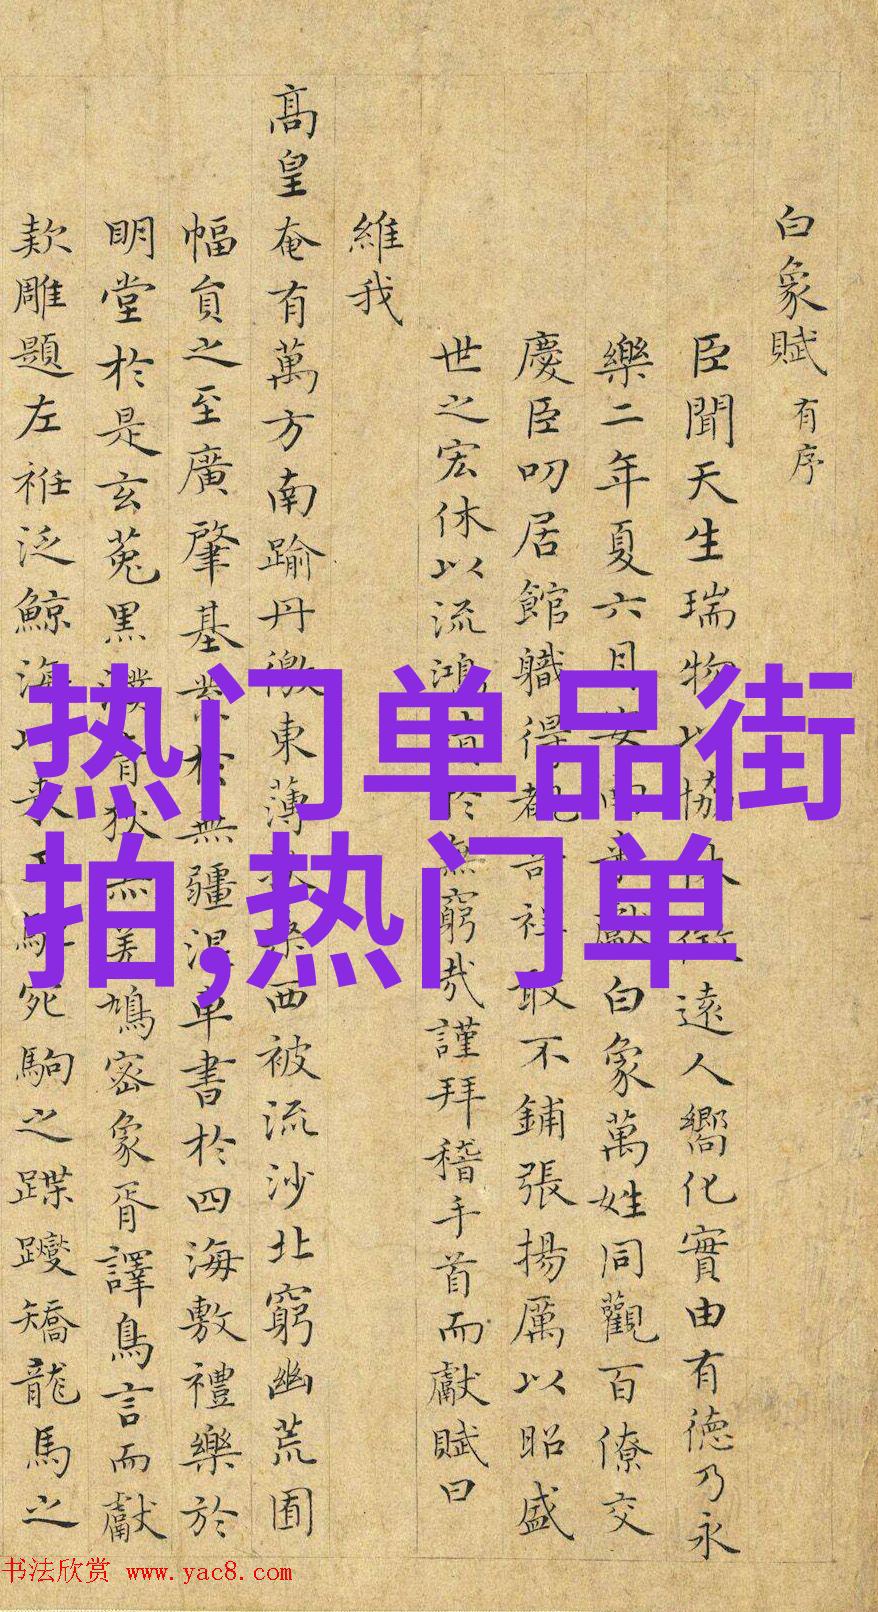 白象賦 有序
臣聞天生瑞物以協休徵遠人嚮化實由有德乃永
樂二年夏六月獻白象萬姓同觀百僚交
慶臣叨居館職得覩奇祥敢不鋪張揚厲以昭盛
世之宏休以流鴻於無窮哉謹拜稽手首而獻賦曰
維我
高皇奄有萬方南踰丹徼東薄桑西被流沙北窮幽荒圃
幅員之至廣肇基業於無疆混車書於四海敷禮樂於
明堂於是玄菟黑濮狄鳩密象胥譯鳥言而獻
款雕題左衽泛鯨海宛駒之蹀躞矯龍馬之
热门单品街
拍,热门单
书法欣赏 www.yac8.com